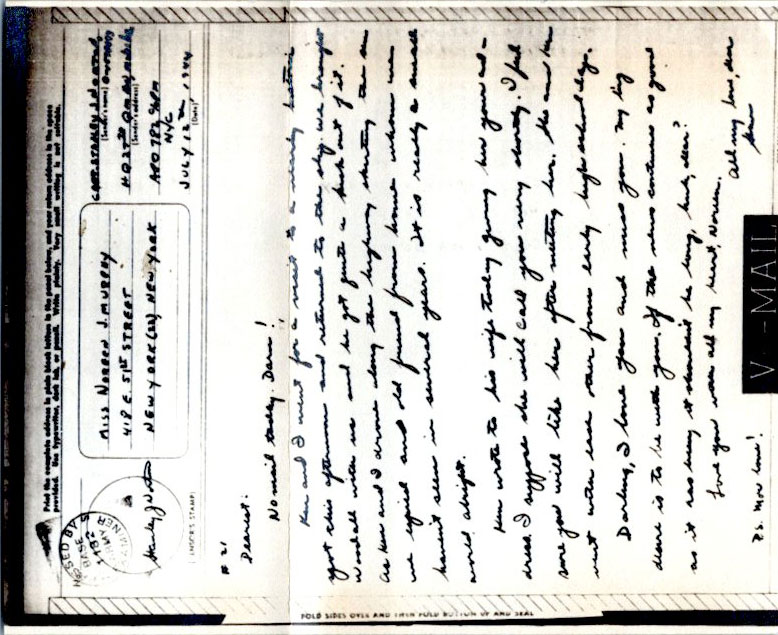 Print the complete address in plain block letters in the panel below, and your return address in the space
provided. Use typewriter, dark ink, or pencil. Write plainly. Very small writing is not suitable.
MISS NOREEN J. MURPHY
418 E. 51ST STREET
NEW YORK (22) NEW YORK
(Sender's name)
(Sender's address)
APO 782
NYC
JULY 12 1944
(Date)
PASSED BY
BASE
ARMY EXAMINER
(CENSOR'S STAMP)
# 21
Dearest:
No mail today. Darn!
Ken and I went for a visit to a nearby
spot this afternoon and returned to the We brought
Woodall with us and he got quite a kick out of it.
As Ken and I drove along the highway skirting the sea
we espied an old friend from home whom we
haven't seen in several years. It is really a small
world alright.
Ken wrote to his wife today giving her your ad-
dress. I suppose she will call you very shortly. I feel
sure you will like her after meeting her. She and Ken
went with each other from early high school days.
Darling, I love you and miss you. My big
desire is to be with you. If the news continues as good
as it has been it shouldn't be long, huh, dear?
Love you with all my heart, Noreen.
All my love, dear
Stan
P.S. Mow love!
V-MAIL
FOLD SIDES OVER AND THEN FOLD BOTTOM UP AND SEAL